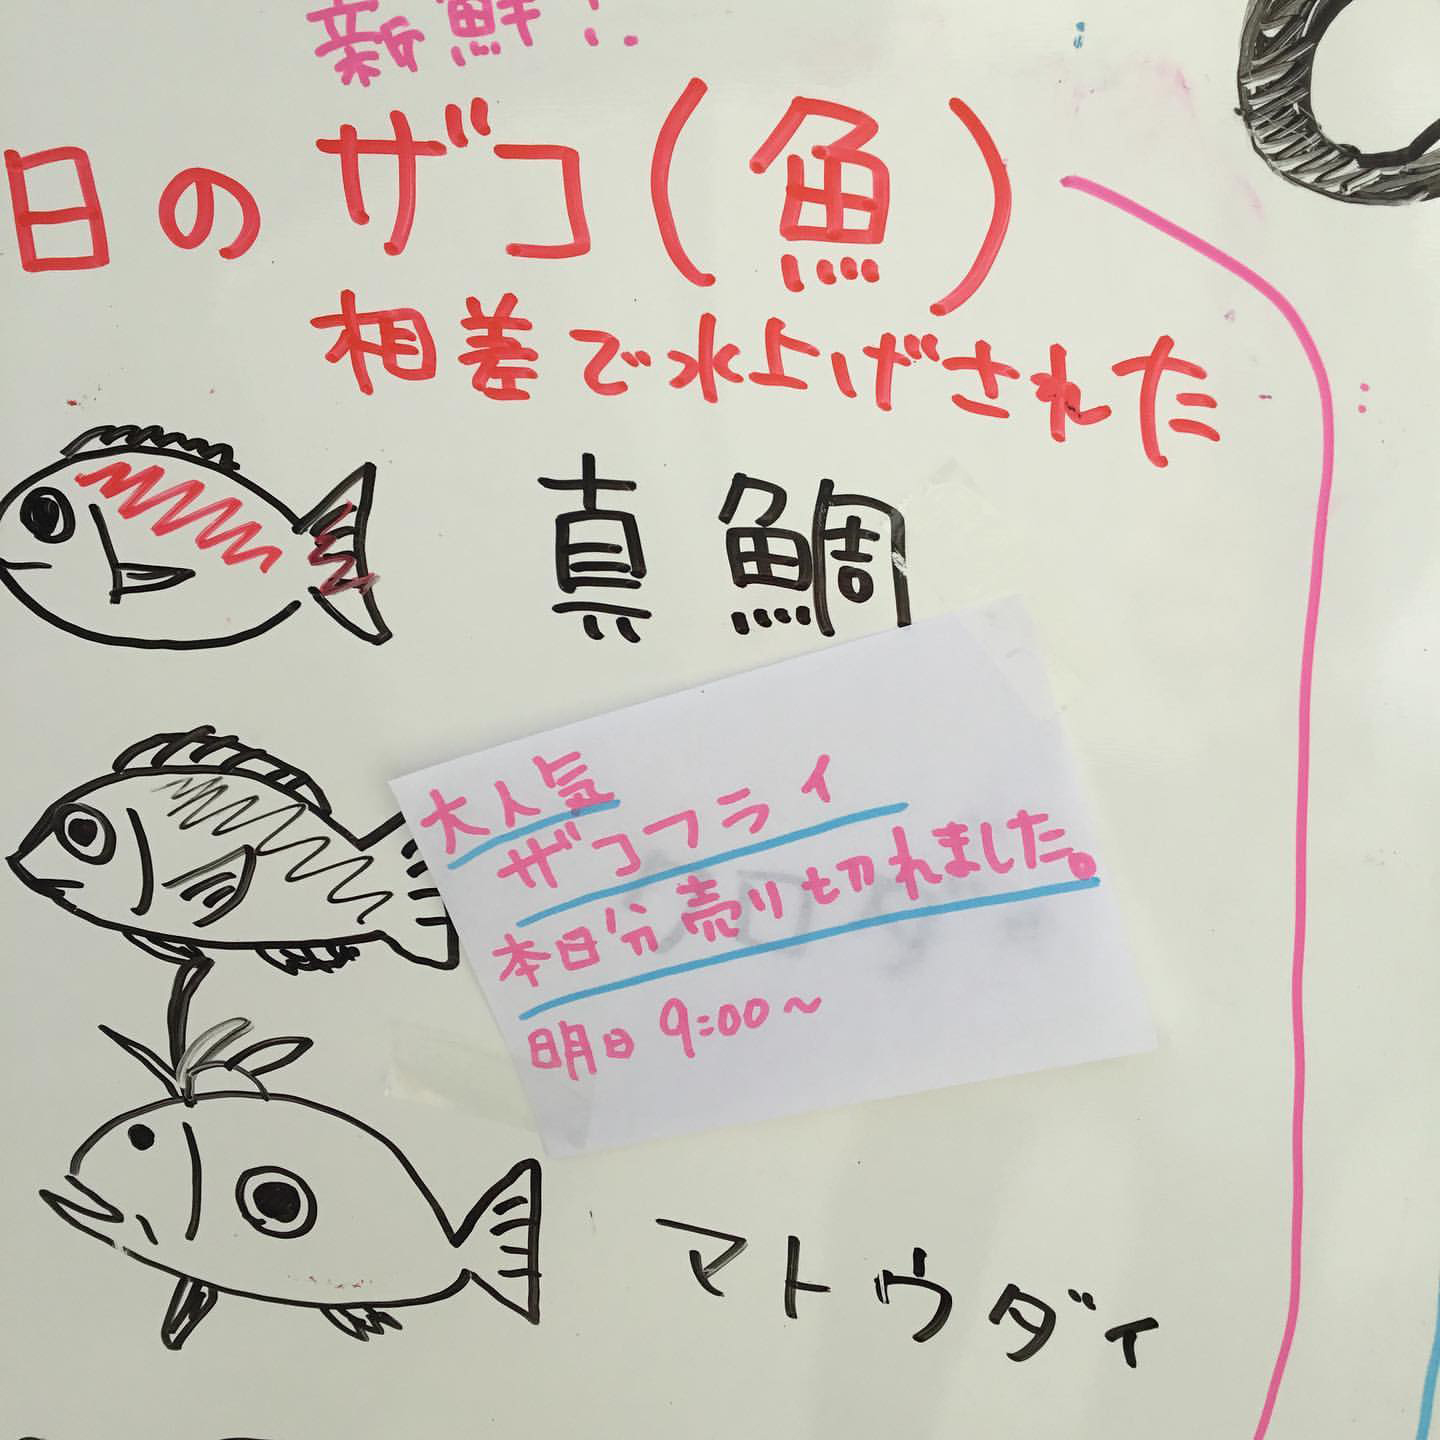 新鮮!
日のザコ(魚)
相差で水上げされた
真鯛
大人気
ザコフライ
本日分売り切れました。
明日9:00～
マトウダイ